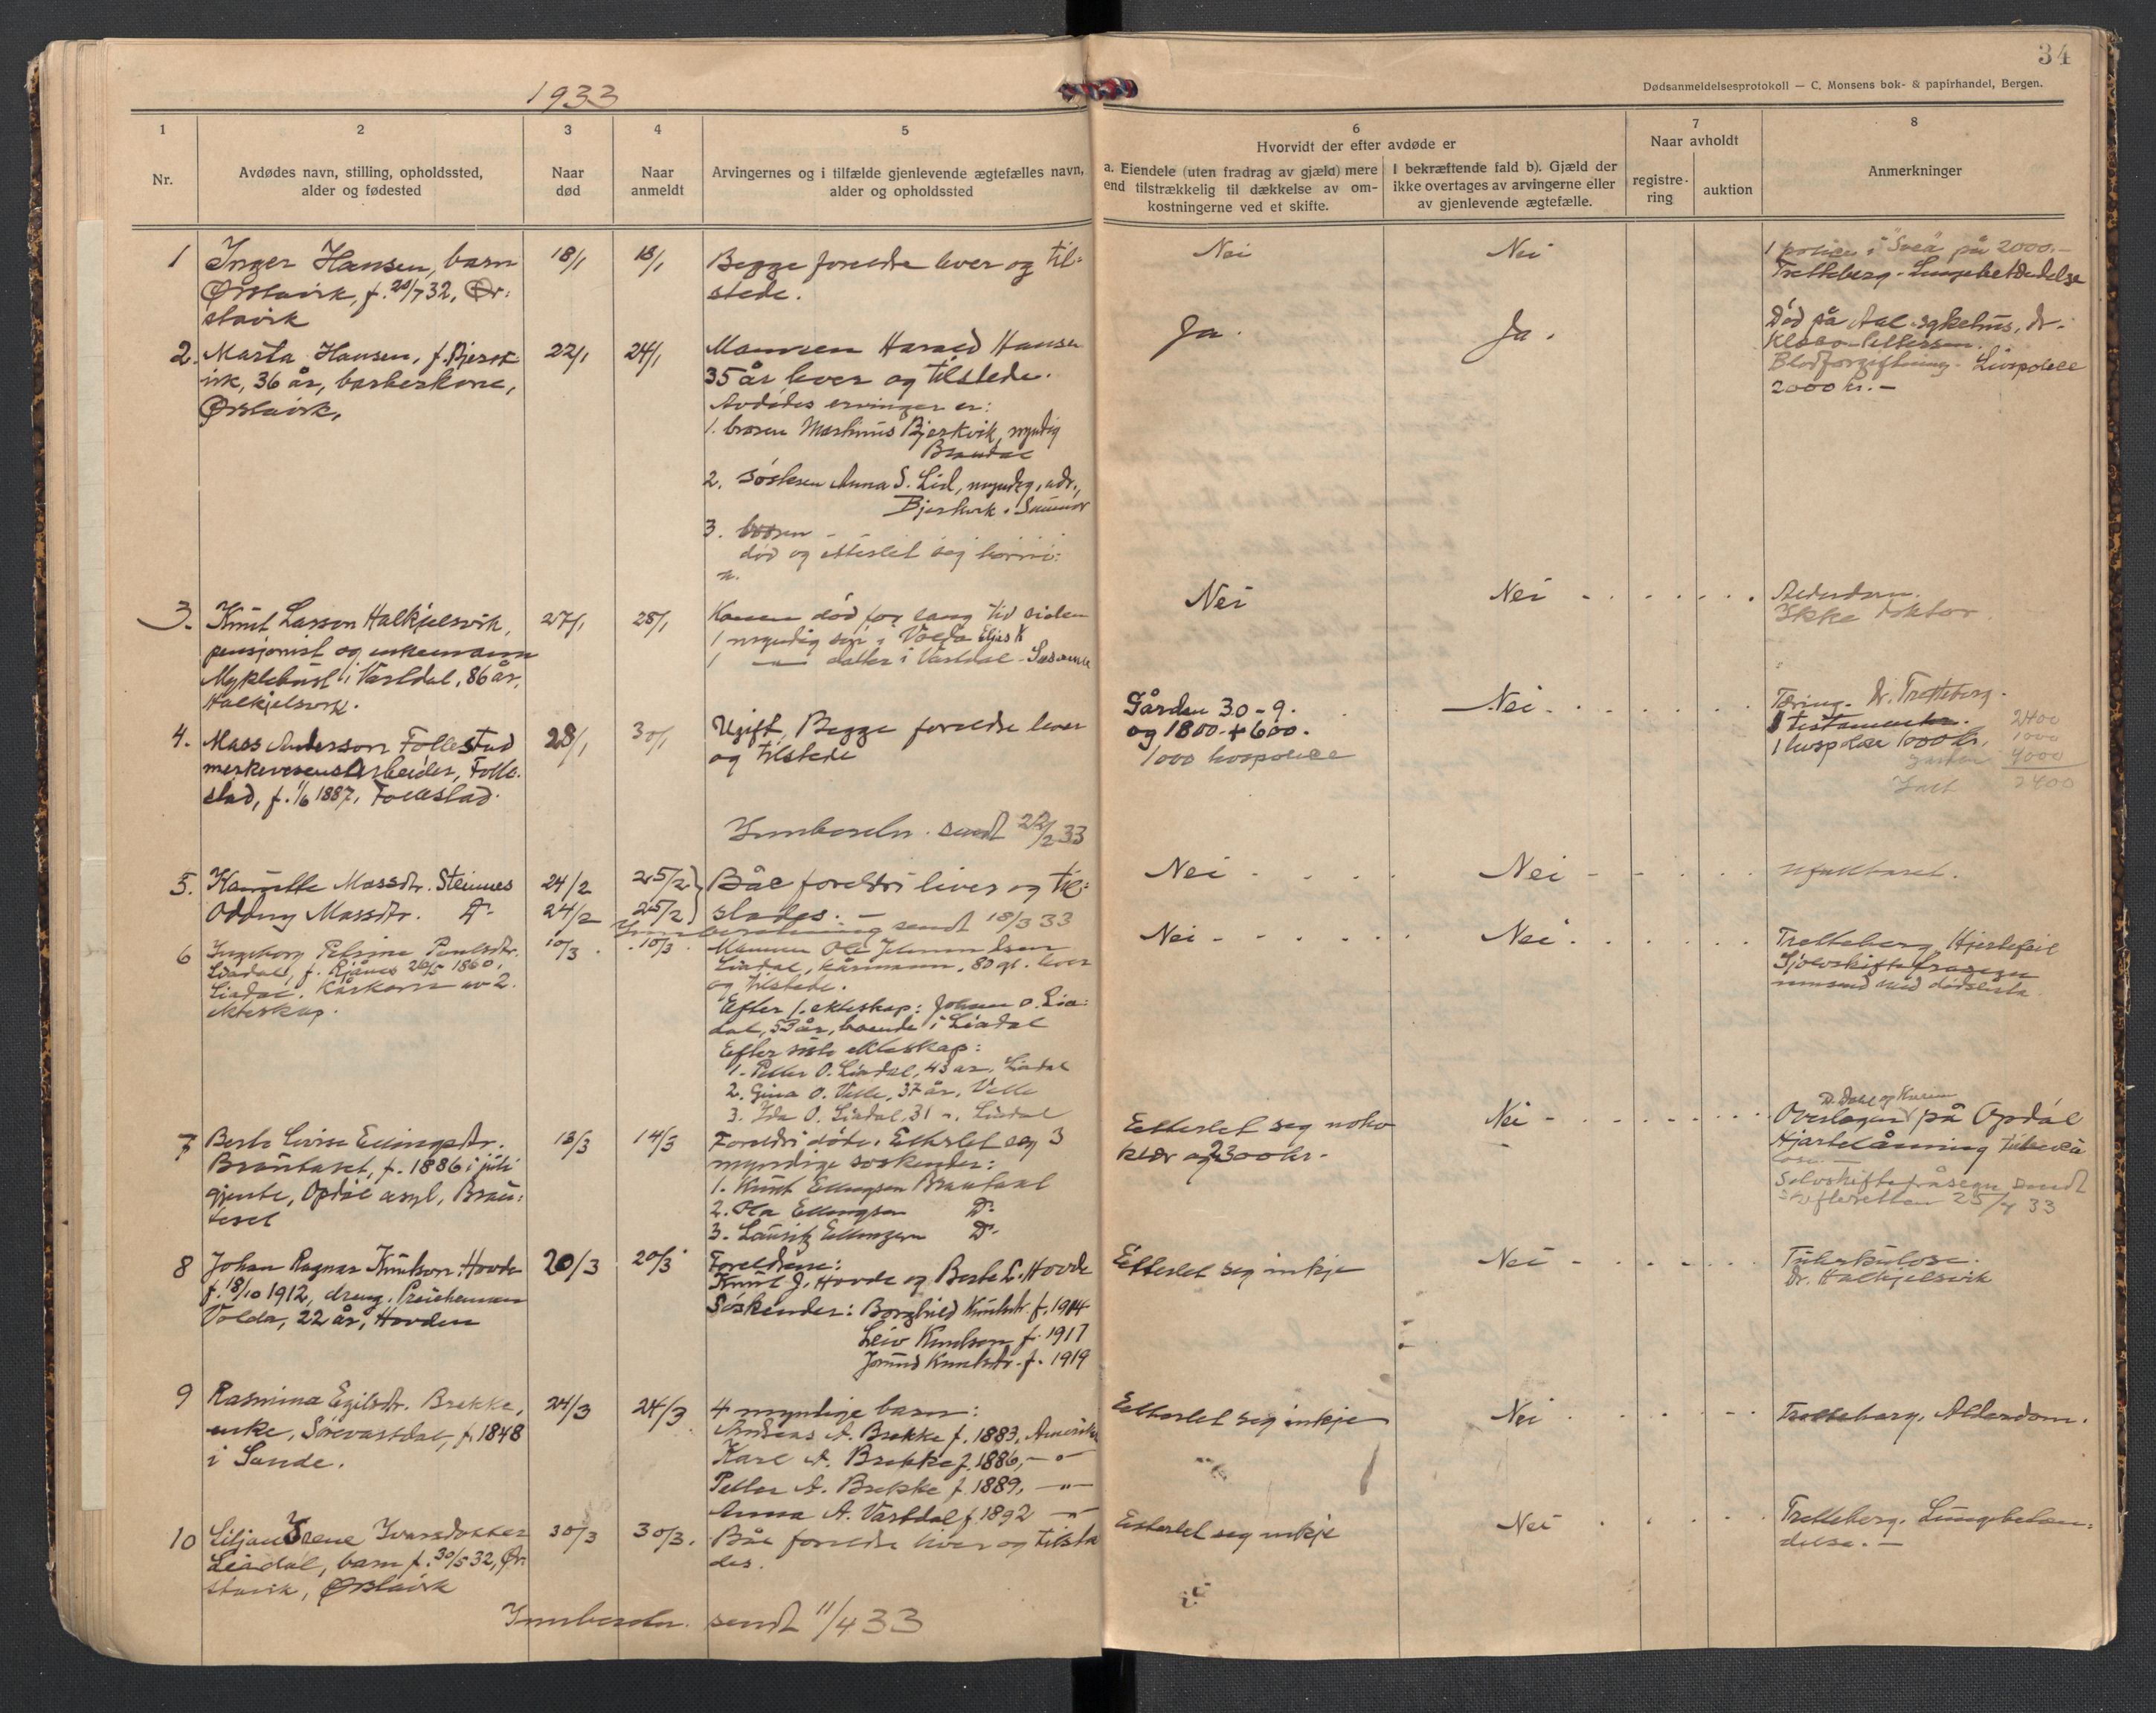 34
Dødsanmeldelsesprotokoll — C. Monsens bok- & papirhandel, Bergen.
1933
1
2
3
4
5
6
7
8
Nr.
Avdødes navn, stilling, opholdssted,
alder og fødested
Naar
død
Naar
anmeldt
Arvingernes og i tilfælde gjenlevende ægtefælles navn,
alder og opholdssted
Hvorvidt der efter avdøde er
a. Eiendele (uten fradrag av gjæld) mere
end tilstrækkelig til dækkelse av om-
kostningerne ved et skifte.
I bekræftende fald b). Gjæld der
ikke overtages av arvingerne eller
av gjenlevende ægtefælle.
Naar avholdt
registre-
ring
auktion
Anmerkninger
1
Inger Hansen, barn
Ørstavik, f. 20/7 32, Ør:
stavik
18/1
18/1
Begge foreldre lever og til:
stede.
Nei
Nei
1 police i "Svea" på 2000.-
Tretteberg - Lungebetendelse
2.
Marta Hansen, f. Bjerk
vik, 36 år, barberkone,
Ørstavik,
22/1
24/1
Mannen Harald Hansen
35 år lever og tilstede.
Avdødes arvinger er:
1. broren Martinus Bjerkvik, myndig
Brandal
2. Søsteren Anna S. Lid, myndig, adr.,
Bjerkvik i
3. broren -
død og etterlet seg born
Ja.
Ja.
Død på Aal. sykehus, dr.
Blodforgiftning. Livspolice
2000 kr. -
3.
Knut Larsen Halkjelsvik,
pensjonist og enkemann
Myklebust i Vartdal, 86 år,
Halkjelsvik.
27/1
28/1
Konen død for lang tid siden
1 myndig søn i Volda Elias K
1 —"— datter i Vartdal -
Nei
Nei
Alderdom.
Ikke doktor.
4.
Mass Anderson Follestad
arbeider, Folle:
stad, f. 1/6 1887, Follestad.
28/1
30/1
Ugift, Begge foreldre lever
og tilstede
Gården 30-9.
og 1800 + 600.
1000 livspolice
Nei
Tæring. Dr. Tretteberg.
1 testamente.
1 livspolice 1000 kr.
2400
1000
4000
7400
Innberetn. sendt 22/2 33
5.
Kamille Massdtr. Steinnes
Oddny Massdtr. Do
24/2
24/2
25/2
25/2
Båe foreldri liver og til:
stades. -
Nei
Nei
Innberetning sendt 18/3 33
6
Ingeborg Petrine Paulsdtr.
Liadal, f. Rjånes 26/5 1860,
Liadal. Kårkone av 2.
ekteskap.
10/3
10/3
Mannen Ole
Liadal, kårmann, 80 gl. liver
og tilstede.
Efter 1. ekteskap: Johan O. Lia:
dal, 53 år, boende i Liadal
Efter siste ekteskap:
1. Petter O. Liadal, 43 år, Liadal
2. Gina O. Velle, 37 år, Velle
3. Ida O. Liadal, 31 ", Liadal
Nei
Nei
Tretteberg Hjertefeil
innsend med dødslista
7
Berte Lovise Ellingsdtr.
Brautaset, f. 1886 i juli
gjente, Opdøl asyl, Brau:
taset
13/3
14/3
Foreldri døde. Etterlet seg 3
myndige søskender:
1. Knut Ellingsen Brautaset
2. Ola Ellingsen Do
3. Lauritz Ellingsen Do
Etterlet seg noko
klær og 2300 kr.
Nei
på Opdøl
Hjartelåmning
sendt
skifteretten 25/4 33
8
Johan Ragnar Knutson Hovde
f. 18/10 1912, dreng,
Volda, 22 år, Hovden
20/3
20/3
Foreldrene:
Knut J. Hovde og Berte L. Hovde
Søskender: Borghild Knutsdtr. f. 1914
Leiv Knutson f. 1917
Jorunn Knutsdtr. f. 1919
Etterlet seg inkje
Nei
Tuberkulose.
Dr. Halkjelsvik
9
Rasmina Egilsdtr. Brekke,
enke, Sørevartdal, f. 1848
i Sande.
24/3
24/3
4 myndige barn:
Andreas A. Brekke f. 1883, Amerika
Karl A. Brekke f. 1886, —"—
Petter A. Brekke f. 1889, —"—
Anna A. Vartdal f. 1892 —"—
Etterlet seg inkje
Nei
Tretteberg, Alderdom.
10
Liljan Irene Ivarsdotter
Liadal, barn f. 30/5 32, Ør:
stavik, Ørstavik
30/3
30/3.
Båe foreldre liver og tilsta
des.
Etterlet seg inkje
Nei
Tretteberg. Lungebeten:
delse. -
Innberetn. sendt 11/4 33